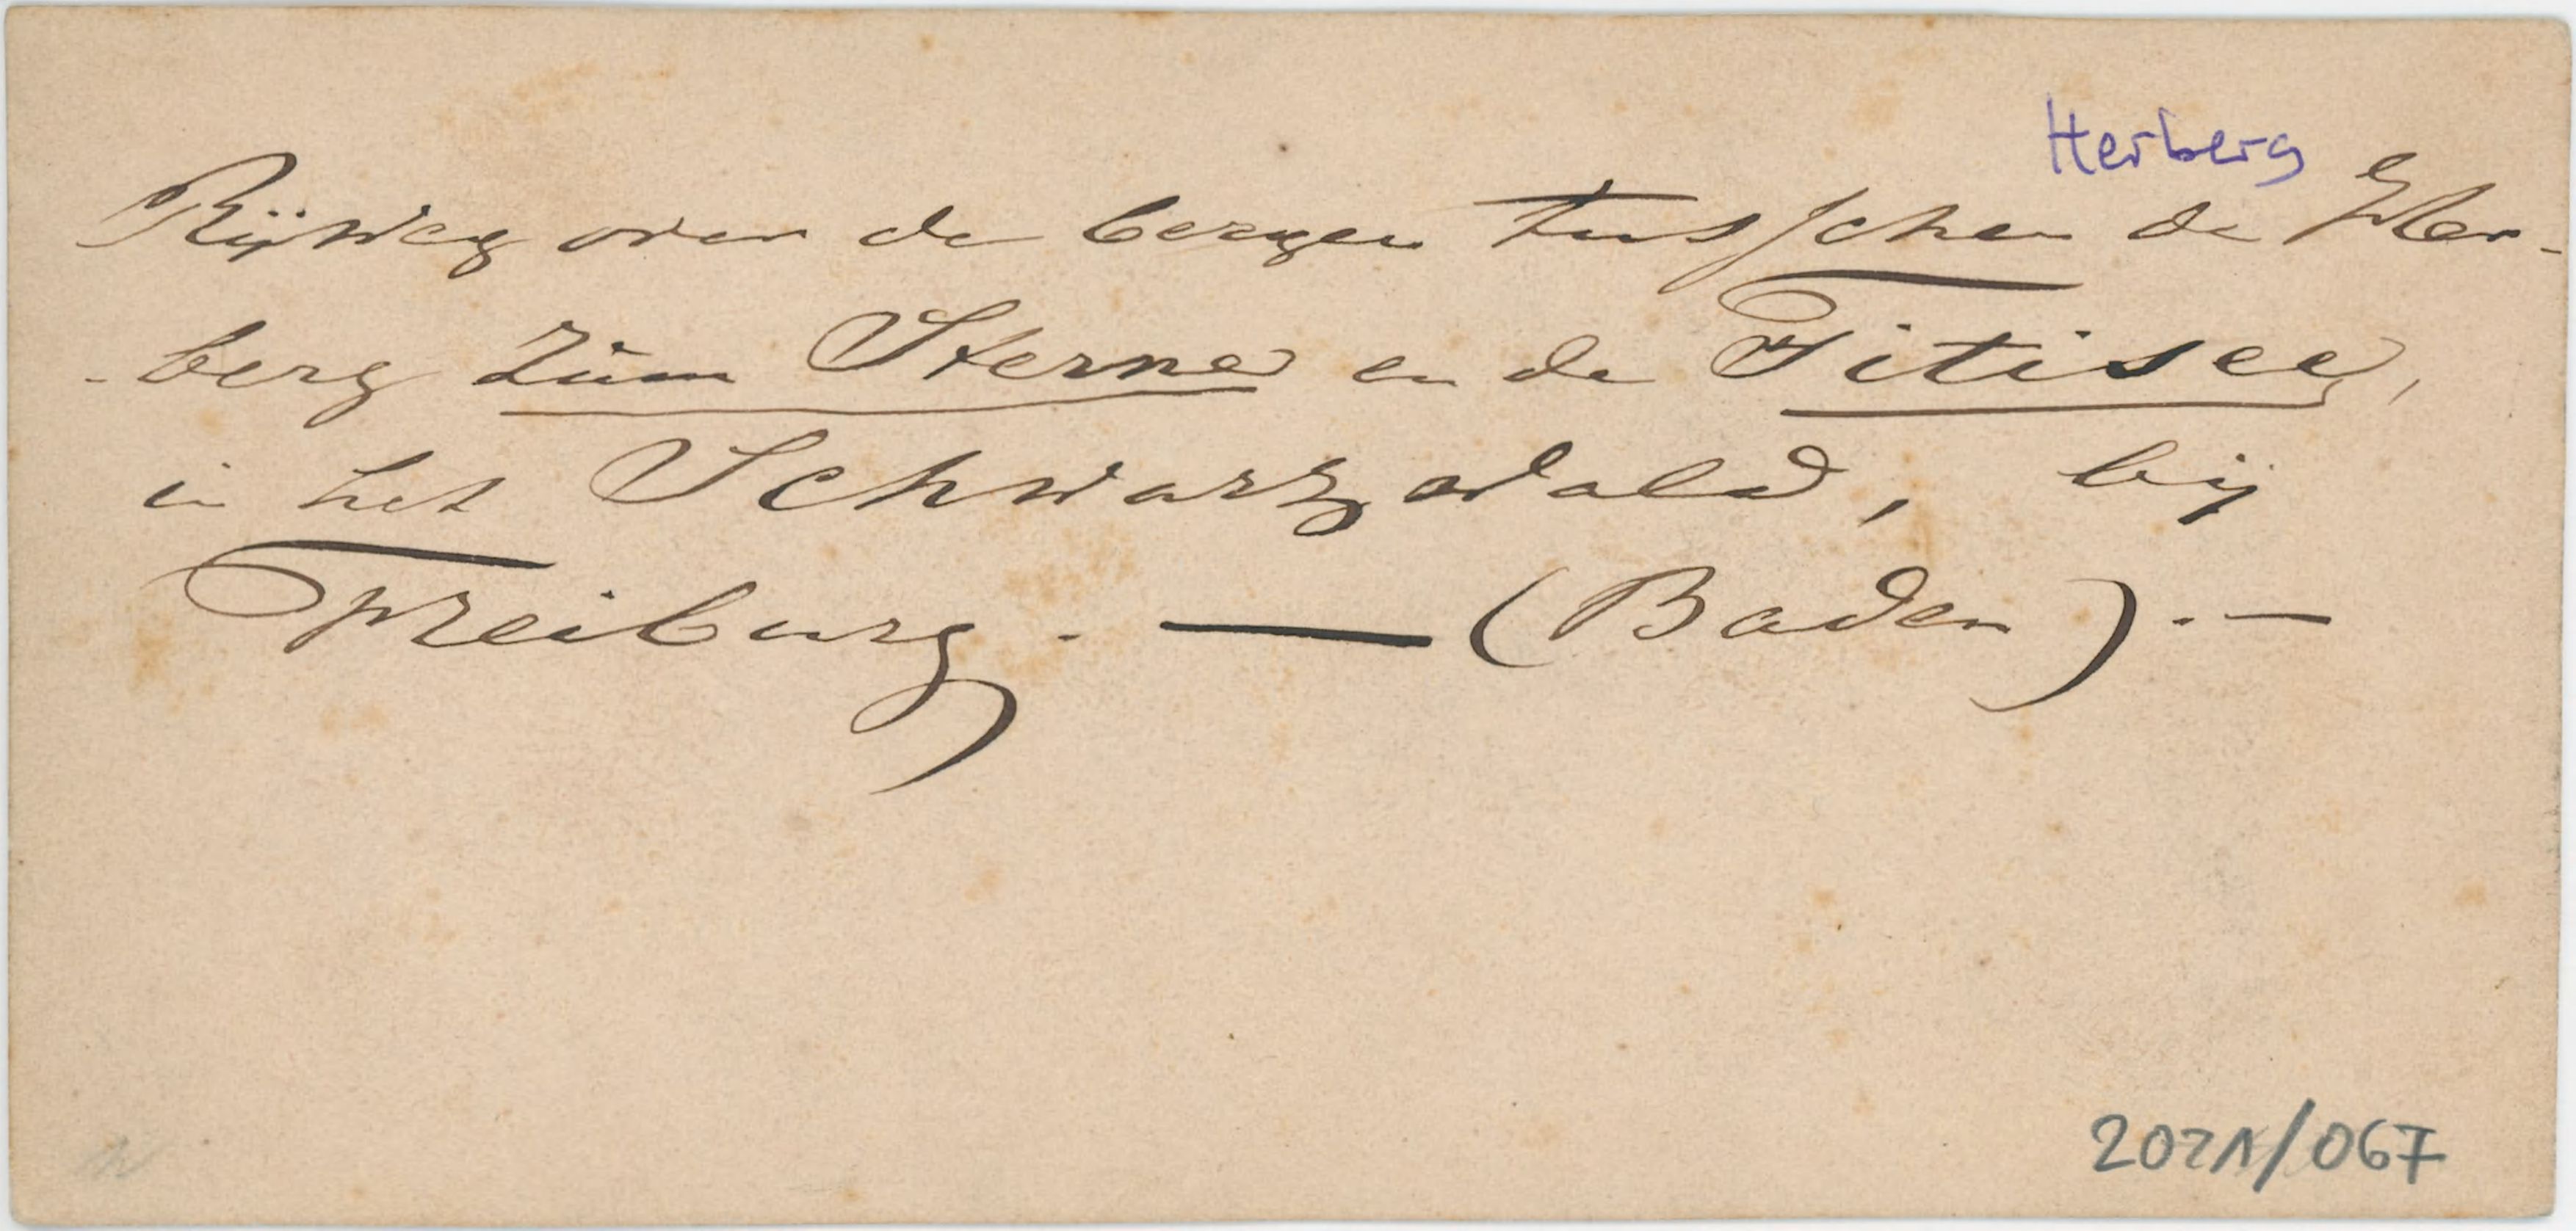 Herberg
Rijweg over de bergen tusschen de Her-
-berg Zùm Sterne en de Titisee,
in het Schwarzwald, bij
Freiburg. — (Baden). —
2021/067